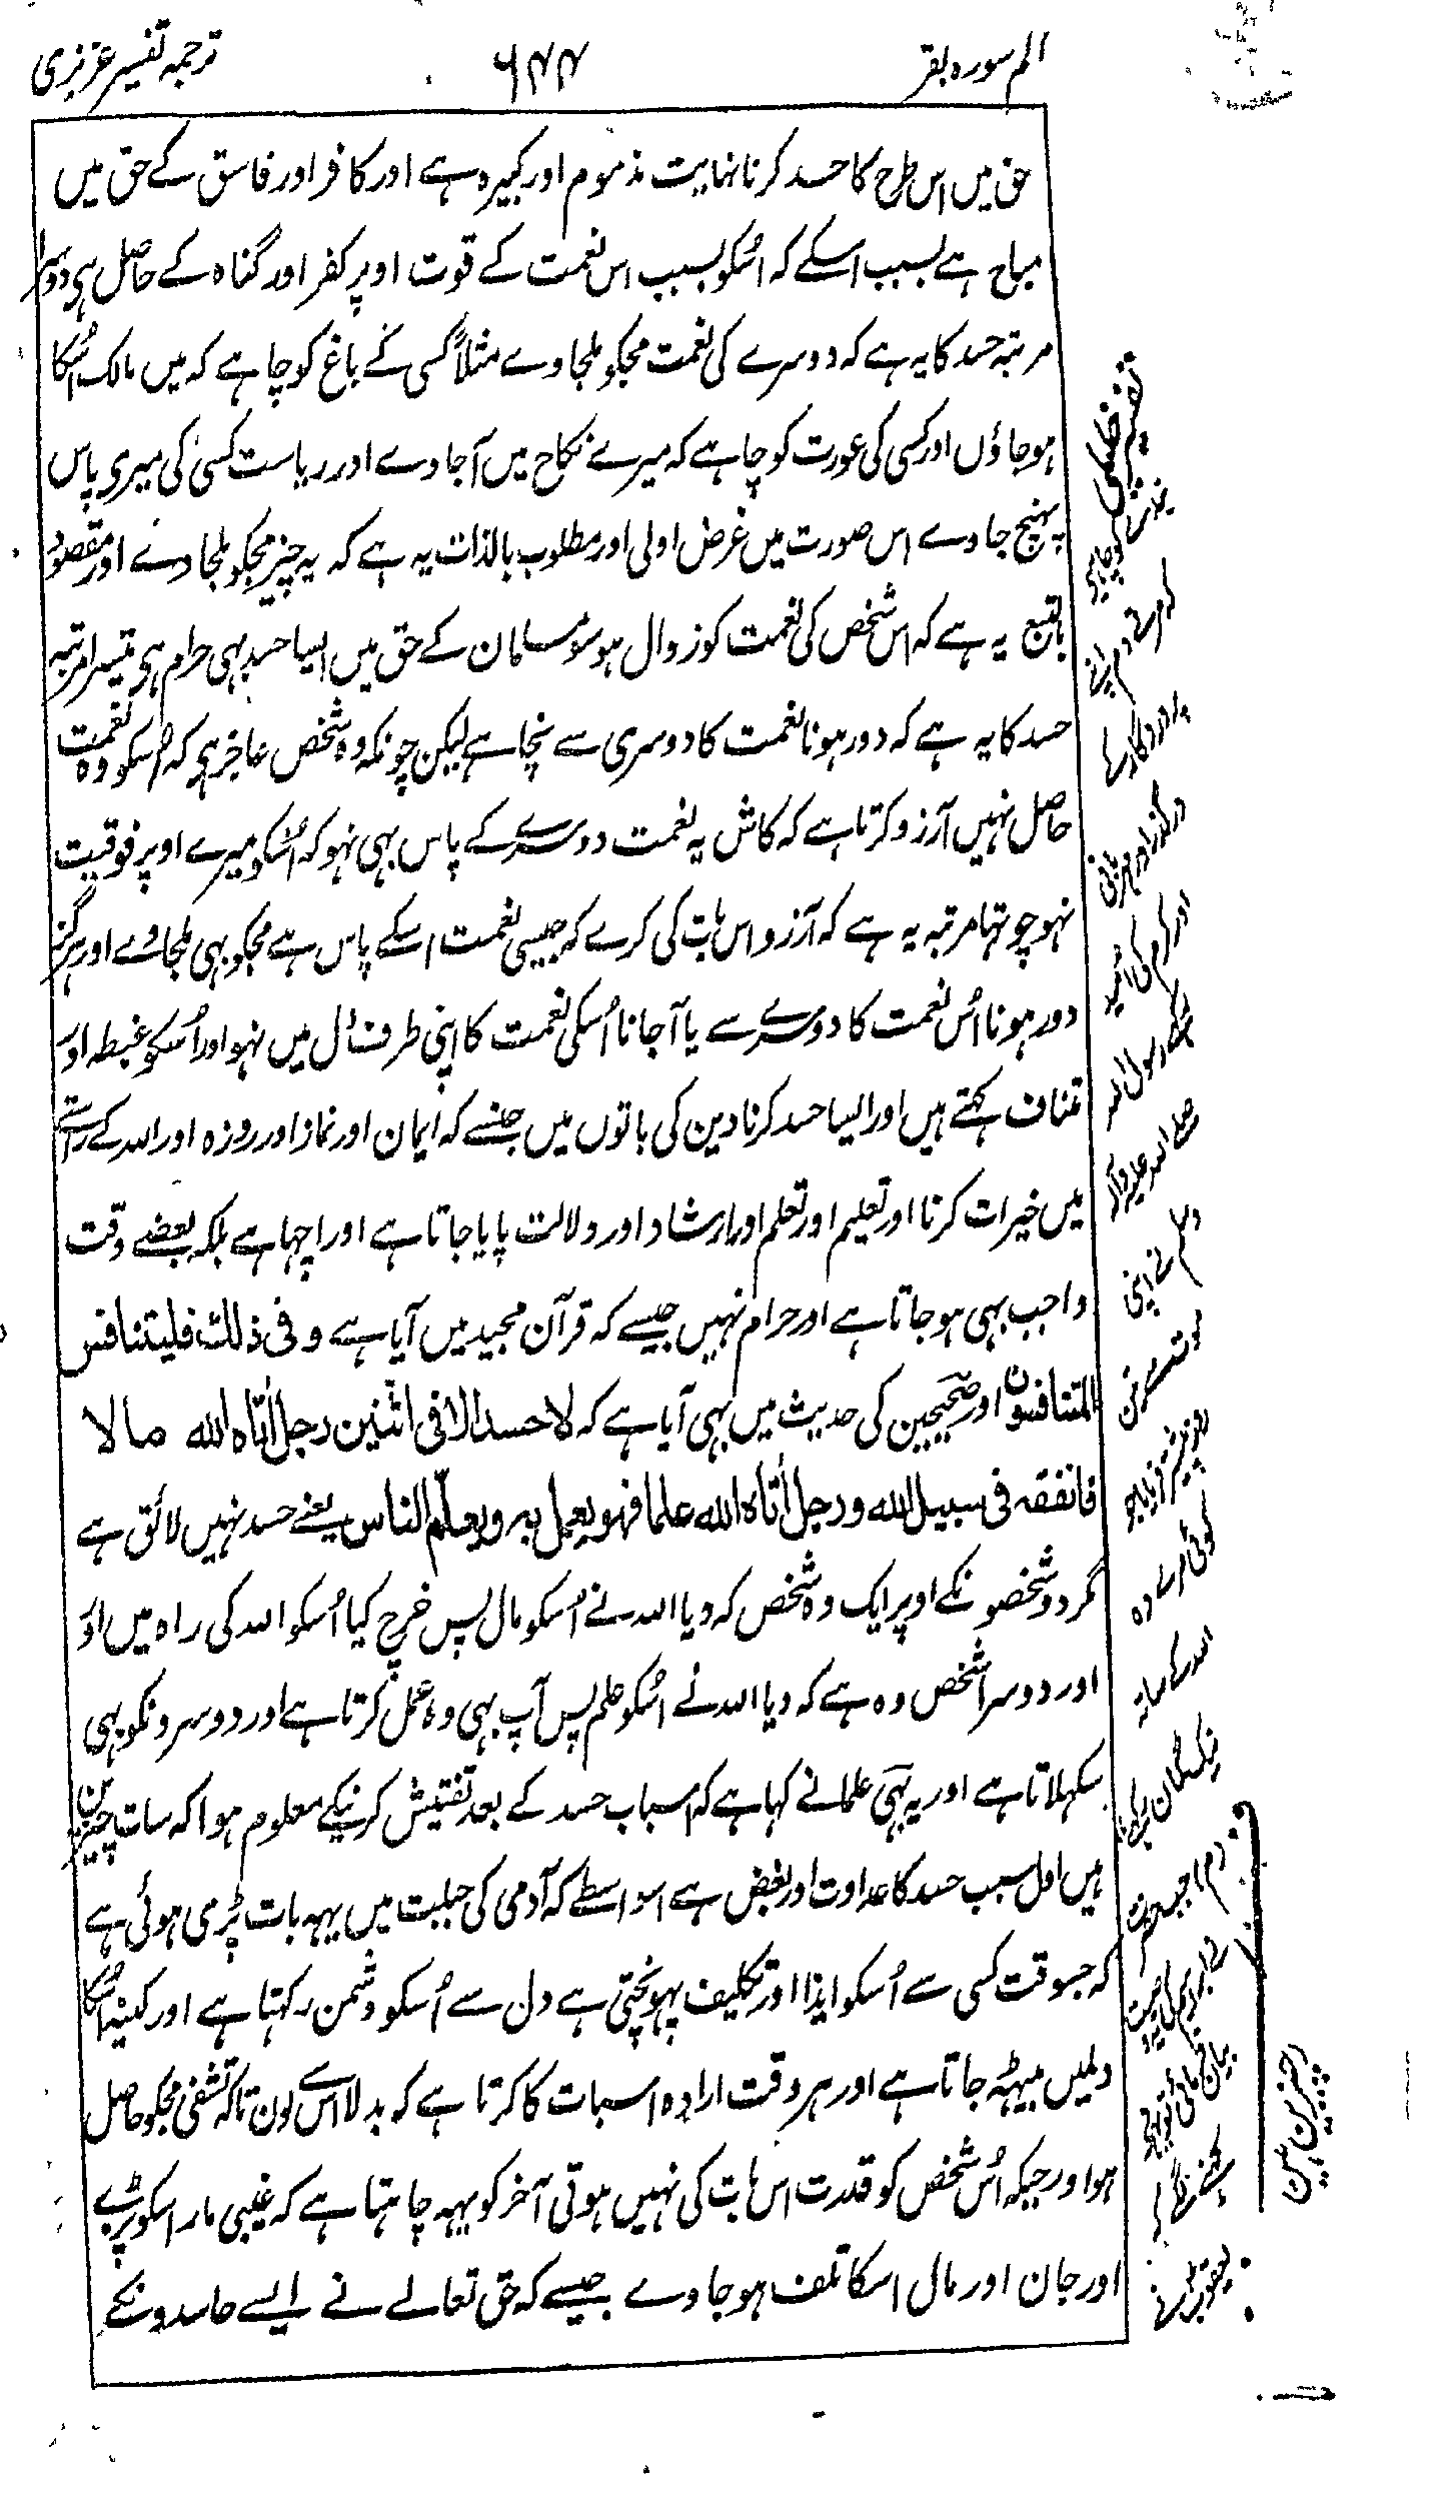 الم سورہ بقر
۶۴۴
ترجمہ تفسیر عزیزی
حق میں اس طرح کا حسد کرنا نہایت مذموم اور کبیرہ ہے اور کافر اور فاسق کے حق میں
مباح ہے بسبب اسکے کہ اُسکو بسبب اس نعمت کے قوت اوپر کفر اور گناہ کے حاصل ہی دوسرا
مرتبہ حسد کا یہ ہے کہ دوسرے کی نعمت مجکو ملجاوے مثلاً کسی کے باغ کو چاہے کہ میں مالک اُسکا
ہوجاؤں اور کسی کی عورت کو چاہے کہ میرے نکاح میں آجاوے اور ریاست کسی کی میری پاس
پہنچ جاوے اس صورت میں غرض اولی اور مطلوب بالذات یہ ہے کہ یہ چیز مجکو ملجاوے اور مقصود
بالتبع یہ ہے کہ اس شخص کی نعمت کو زوال ہو سو مسلمان کے حق میں ایسا حسد بہی حرام ہی تیسرا مرتبہ
حسد کا یہ ہے کہ دور ہونا نعمت کا دوسری سے چاہے لیکن چونکہ وہ شخص عاجز ہی کہ اُسکو وہ نعمت
حاصل نہیں آرزو کرتا ہے کہ کاش یہ نعمت دوسرے کے پاس بہی نہو کہ اُسکو میرے اوپر فوقیت
نہو چوتہا مرتبہ یہ ہے کہ آرزو اس بات کی کرے کہ جیسی نعمت اسکے پاس ہے مجکو بہی ملجاوے اور ہرگز
دور ہونا اُس نعمت کا دوسرے سے یا آجانا اُسکی نعمت کا اپنی طرف دل میں نہو اور اُسکو غبطہ اور
تنافس کہتے ہیں اور ایسا حسد کرنا دین کی باتوں میں جیسے کہ ایمان اور نماز اور روزہ اور اللہ کے راستے
میں خیرات کرنا اور تعلیم اور تعلم اور ارشاد اور دلالت پایا جاتا ہے اور اچہا ہے بلکہ بعضے وقت
واجب بہی ہوجاتا ہے اور حرام نہیں جیسے کہ قرآن مجید میں آیا ہے وفی ذلک فلیتنافس
المتنافسون اور صحیحین کی حدیث میں بہی آیا ہے کہ لا حسد الا فی اثنین رجل اتاہ اللہ مالا
فانفقہ فی سبیل اللہ ورجل اتاہ اللہ علما فہو یعمل بہ ویعلّم الناس یعنے حسد نہیں لائق ہے
مگر دو شخصونکے اوپر ایک وہ شخص کہ دیا اللہ نے اُسکو مال پس خرچ کیا اُسکو اللہ کی راہ میں اور
اور دوسرا شخص وہ ہے کہ دیا اللہ نے اُسکو علم پس آپ بہی وہ عمل کرتا ہے اور دوسرونکو بہی
سکہلاتا ہے اور یہ بہی علما نے کہا ہے کہ اسباب حسد کے بعد تفتیش کرنیکے معلوم ہوا کہ سات چیزیں
ہیں اول سبب حسد کا عداوت اور بغض ہے اسواسطے کہ آدمی کی جبلت میں یہہ بات پڑی ہوئی ہے
کہ جسوقت کسی سے اُسکو ایذا اور تکلیف پہونچتی ہے دل سے اُسکو دشمن رکہتا ہے اور کینہ اُسکا
دلمیں بیٹہہ جاتا ہے اور ہر وقت ارادہ اسبات کا کرتا ہے کہ بدلا اس سے لون تاکہ تشفی مجکو حاصل
ہو اور جبکہ اُس شخص کو قدرت اس بات کی نہیں ہوتی آخر کو یہہ چاہتا ہے کہ غیبی مار اسکو پڑے
اور جان اور مال اسکا تلف ہوجاوے جیسے کہ حق تعالے نے ایسے حاسدونکے
پروردگار سے
درگزر اور مہربانی
اور کرم کی امید
رکہے رسول اللہ
صلے اللہ علیہ وآلہ
کوئی ارادہ
اللہ کے ساتھ
نیک گمان رکہے